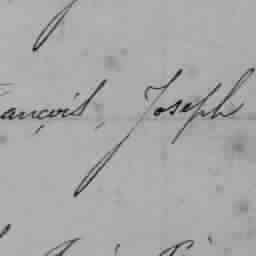 ançois, Joseph